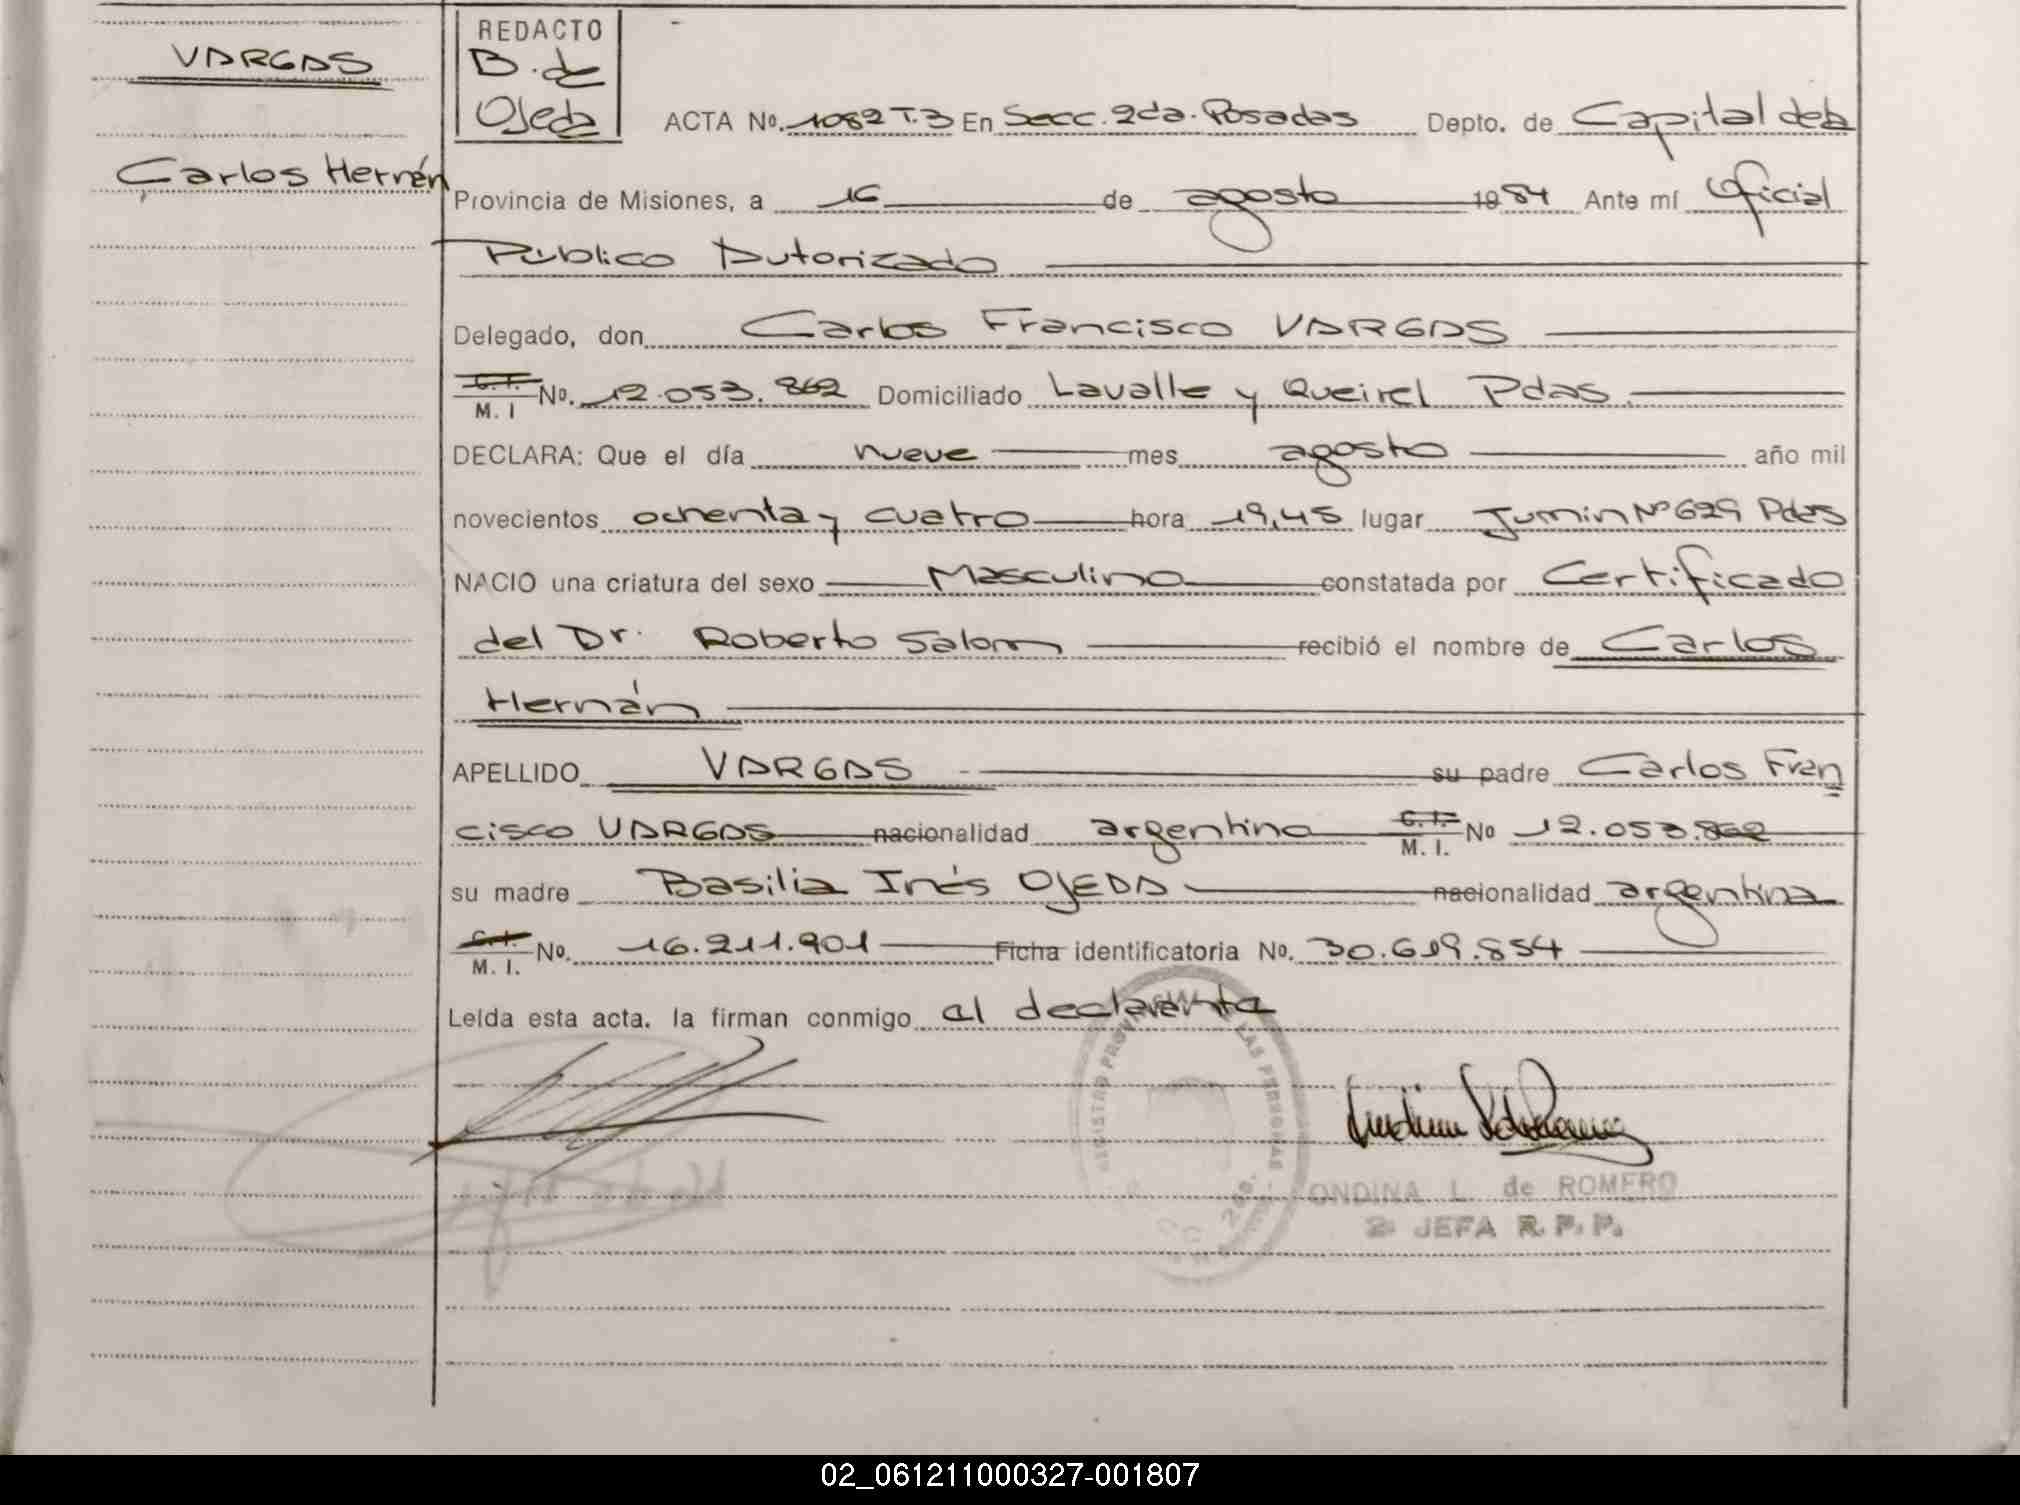 VARGAS
Carlos Hernán
REDACTO
B. de
Ojeda
ACTA No. 1082 T.3 En Secc. 2da. Posadas Depto. de Capital de la
Provincia de Misiones, a 16 de agosto 1984 Ante mí Oficial
Público Autorizado
Delegado, don Carlos Francisco VARGAS
C. I. No. 12.053.862 Domiciliado Lavalle y Queirel Pdas.
M. I
DECLARA: Que el día nueve mes agosto año mil
novecientos ochenta y cuatro hora 19,45 lugar Junin Nº 629 Pdas
NACIO una criatura del sexo Masculino constatada por Certificado
del Dr. Roberto Salom recibió el nombre de Carlos
Hernán
APELLIDO VARGAS su padre Carlos Fran
cisco VARGAS nacionalidad argentino C. I. No 12.053.862
M. I.
su madre Basilia Inés OJEDA nacionalidad argentina
C. I. No. 16.211.901 Ficha identificatoria No. 30.619.854
M. I.
Leída esta acta. la firman conmigo el declarante
REGISTRO PROVINCIAL DE LAS PERSONAS
ONDINA L. de ROMERO
2ª JEFA R. P. P.
02_061211000327-001807